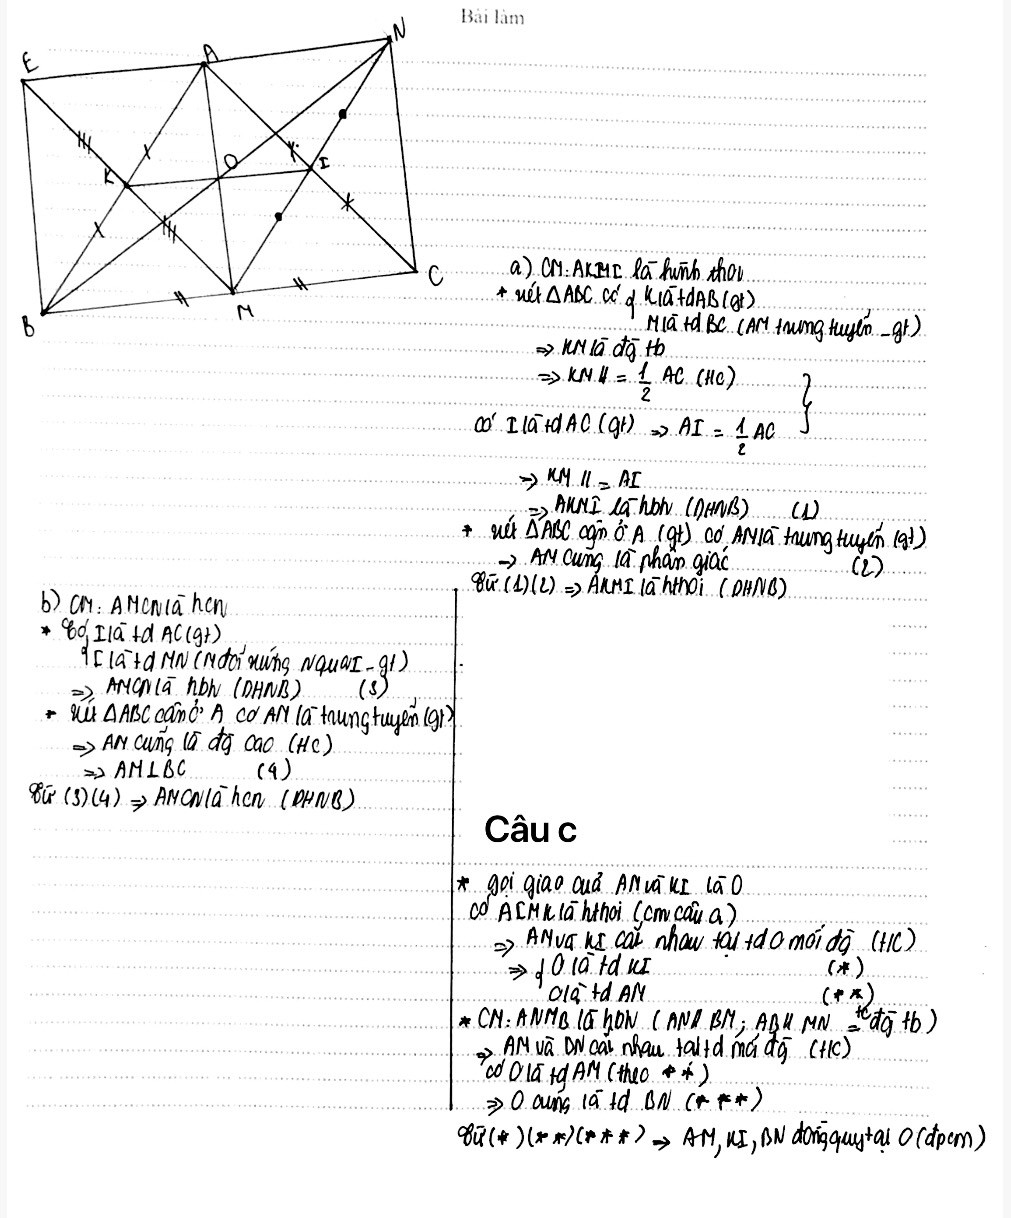 Bài làm
E
A
N
K
O
I
B
M
C
a) CM: AKMI là hình thoi
* xét ΔABC có { K là td AB (gt)
M là td BC (AM trung tuyến - gt)
=> KM là đg tb
=> KM // = 1/2 AC (HC) }
có I là td AC (gt) => AI = 1/2 AC
=> KM // = AI
=> AKMI là hbh (DHNB) (1)
* xét ΔABC cân ở A (gt) có AM là trung tuyến (gt)
=> AM cũng là phân giác (2)
Từ (1)(2) => AKMI là hthoi (DHNB)
b) CM: AMCN là hcn
* Có { I là td AC (gt)
I là td MN (M đối xứng N qua I - gt)
=> AMCN là hbh (DHNB) (3)
* xét ΔABC cân ở A có AM là trung tuyến (gt)
=> AM cũng là đg cao (HC)
=> AM⊥BC (4)
Từ (3)(4) => AMCN là hcn (DHNB)
Câu c
* gọi giao của AM và KI là O
có AIMK là hthoi (cm câu a)
=> AM và KI cắt nhau tại td O mỗi đg (HC)
=> { O là td KI (*)
O là td AM (**)
* CM: ANMB là hbh (AN // BM; AB // MN = tc đg tb)
=> AM và BN cắt nhau tại td mỗi đg (HC)
có O là td AM (theo **)
=> O cũng là td BN (***)
Từ (*)(**)(***) => AM, KI, BN đồng quy tại O (đpcm)